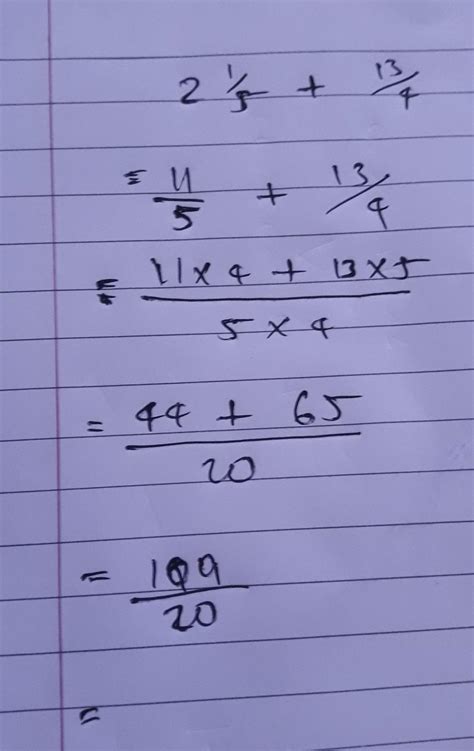 2 1/5 + 13/4
= 11/5 + 13/4
= 11 × 4 + 13 × 5 / 5 × 4
= 44 + 65 / 20
= 109/20
=